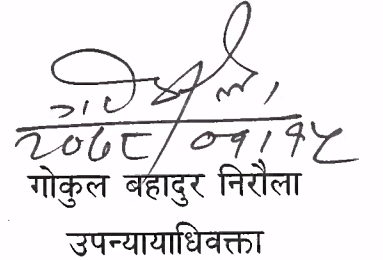 २०७८/०१/१५
गोकुल बहादुर निरौला
उपन्यायाधिवक्ता